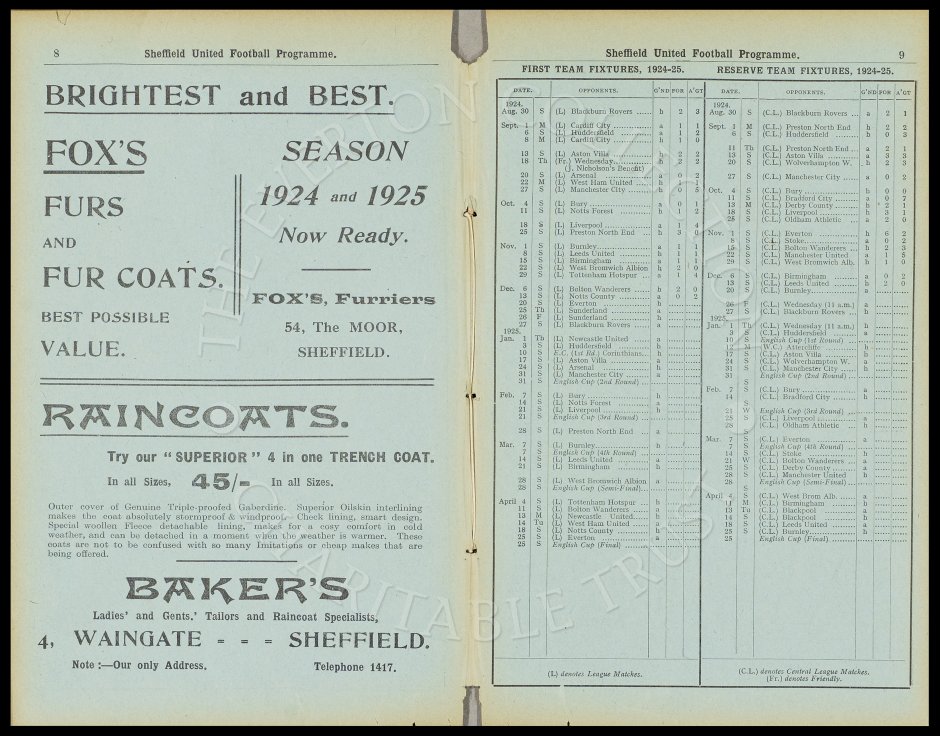 8
Sheffield United Football Programme.
BRIGHTEST and BEST.
FOX'S
FURS
AND
FUR COATS.
BEST POSSIBLE
VALUE.
SEASON
1924 and 1925
Now Ready.
FOX'S, Furriers
54, The MOOR,
SHEFFIELD.
RAINCOATS.
Try our "SUPERIOR" 4 in one TRENCH COAT.
In all Sizes, 45/- In all Sizes.
Outer cover of Genuine Triple-proofed Gaberdine. Superior Oilskin interlining
makes the coat absolutely stormproof & windproof. Check lining, smart design.
Special woollen Fleece detachable lining, makes for a cosy comfort in cold
weather, and can be detached in a moment when the weather is warmer. These
coats are not to be confused with so many Imitations or cheap makes that are
being offered.
BAKER'S
Ladies' and Gents.' Tailors and Raincoat Specialists,
4, WAINGATE = = = SHEFFIELD.
Note :—Our only Address. Telephone 1417.
Sheffield United Football Programme. 9
FIRST TEAM FIXTURES, 1924-25.
DATE. OPPONENTS. G'ND FOR A'GT
1924.
Aug. 30 S (L) Blackburn Rovers h 2 3
Sept. 1 M (L) Cardiff City a 1 1
6 S (L) Huddersfield a 1 2
8 M (L) Cardiff City h 1 0
13 S (L) Aston Villa h 2 2
18 Th (Fr.) Wednesday h 2 2
(J. Nicholson's Benefit)
20 S (L) Arsenal a 0 2
22 M (L) West Ham United h 1 1
27 S (L) Manchester City h 0 5
Oct. 4 S (L) Bury a 0 1
11 S (L) Notts Forest h 1 2
18 S (L) Liverpool a 1 4
25 S (L) Preston North End h 3 0
Nov. 1 S (L) Burnley a 1 1
8 S (L) Leeds United h 1 1
15 S (L) Birmingham a 1 1
22 S (L) West Bromwich Albion h 2 0
29 S (L) Tottenham Hotspur a 1 4
Dec. 6 S (L) Bolton Wanderers h 2 0
13 S (L) Notts County a 0 2
20 S (L) Everton h
25 Th (L) Sunderland a
26 F (L) Sunderland h
27 S (L) Blackburn Rovers a
1925.
Jan. 1 Th (L) Newcastle United a
3 S (L) Huddersfield h
10 S E.C. (1st Rd.) Corinthians h
17 S (L) Aston Villa a
24 S (L) Arsenal h
31 S (L) Manchester City a
31 S English Cup (2nd Round)
Feb. 7 S (L) Bury h
14 S (L) Notts Forest a
21 S (L) Liverpool h
21 S English Cup (3rd Round)
28 S (L) Preston North End a
Mar. 7 S (L) Burnley h
7 S English Cup (4th Round)
14 S (L) Leeds United a
21 S (L) Birmingham h
28 S (L) West Bromwich Albion a
28 S English Cup (Semi-Final)
April 4 S (L) Tottenham Hotspur h
11 S (L) Bolton Wanderers a
13 M (L) Newcastle United h
14 Tu (L) West Ham United a
18 S (L) Notts County h
25 S (L) Everton a
25 S English Cup (Final)
(L) denotes League Matches.
RESERVE TEAM FIXTURES, 1924-25.
DATE. OPPONENTS. G'ND FOR A'GT
1924.
Aug. 30 S (C.L.) Blackburn Rovers a 2 1
Sept. 1 M (C.L.) Preston North End h 2 2
6 S (C.L.) Huddersfield h 0 3
11 Th (C.L.) Preston North End a 2 1
13 S (C.L.) Aston Villa a 3 3
20 S (C.L.) Wolverhampton W. h 2 3
27 S (C.L.) Manchester City a 0 2
Oct. 4 S (C.L.) Bury h 0 0
11 S (C.L.) Bradford City a 0 7
13 M (C.L.) Derby County h 2 1
18 S (C.L.) Liverpool h 3 1
25 S (C.L.) Oldham Athletic a 2 0
Nov. 1 S (C.L.) Everton h 6 2
8 S (C.L.) Stoke a 0 2
15 S (C.L.) Bolton Wanderers h 2 3
22 S (C.L.) Manchester United a 1 5
29 S (C.L.) West Bromwich Alb. h 1 0
Dec. 6 S (C.L.) Birmingham a 0 2
13 S (C.L.) Leeds United h 2 0
20 S (C.L.) Burnley a
26 F (C.L.) Wednesday (11 a.m.) a
27 S (C.L.) Blackburn Rovers h
1925.
Jan. 1 Th (C.L.) Wednesday (11 a.m.) h
3 S (C.L.) Huddersfield a
10 S English Cup (1st Round)
12 M (W.C.) Attercliffe h
17 S (C.L.) Aston Villa h
24 S (C.L.) Wolverhampton W. a
31 S (C.L.) Manchester City h
31 English Cup (2nd Round)
Feb. 7 S (C.L.) Bury a
14 (C.L.) Bradford City h
S
21 W English Cup (3rd Round)
25 S (C.L.) Liverpool a
28 S (C.L.) Oldham Athletic h
Mar. 7 S (C.L.) Everton a
7 S English Cup (4th Round)
14 S (C.L.) Stoke h
21 W (C.L.) Bolton Wanderers a
25 S (C.L.) Derby County a
28 S (C.L.) Manchester United h
28 S English Cup (Semi-Final)
April 4 S (C.L.) West Brom Alb. a
11 M (C.L.) Birmingham h
13 Tu (C.L.) Blackpool a
14 S (C.L.) Blackpool h
18 S (C.L.) Leeds United a
25 S (C.L.) Burnley h
25 English Cup (Final)
(C.L.) denotes Central League Matches.
(Fr.) denotes Friendly.
THE EVERTON
CHARITABLE TRUST